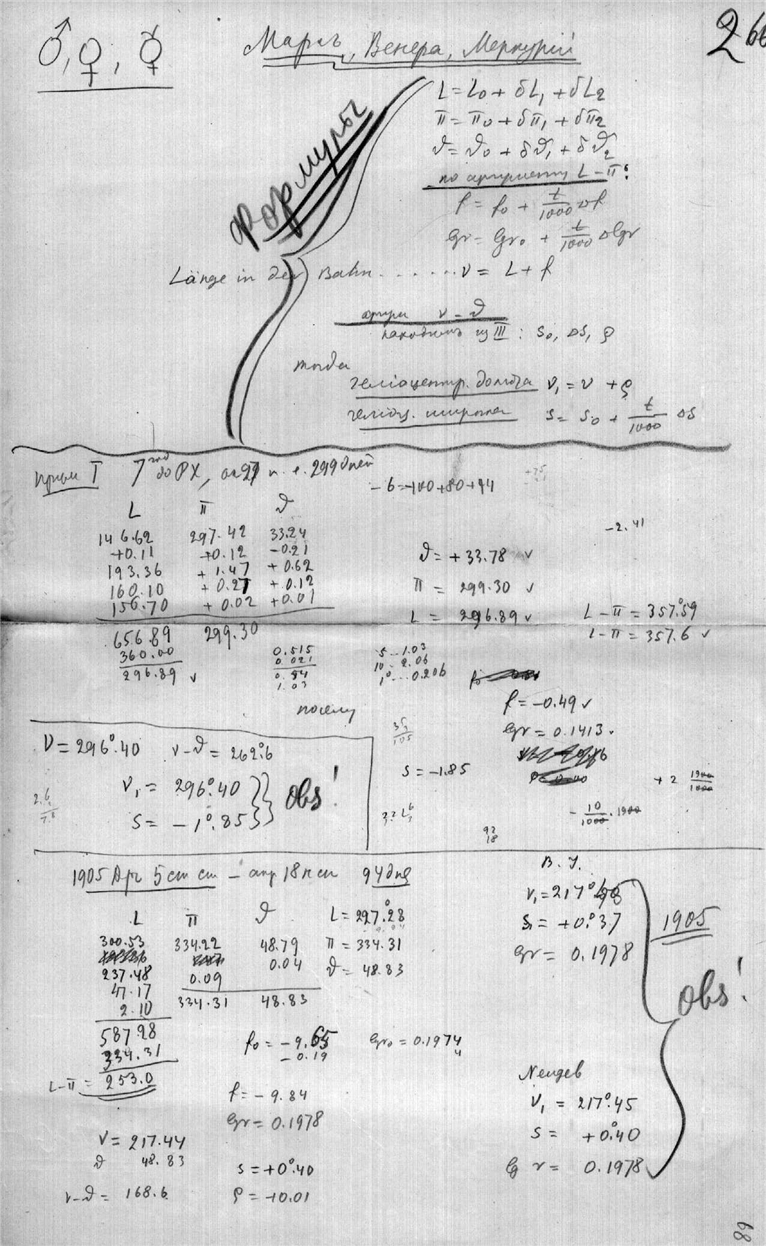 ♂, ♀, ☿
Марсъ, Венера, Меркурій
2
Формулы
L = L₀ + δL₁ + δL₂
π = π₀ + δπ₁ + δπ₂
ϑ = ϑ₀ + δϑ₁ + δϑ₂
по аргументу L − π:
f = f₀ + t/1000 Δf
lgr = lgr₀ + t/1000 Δlgr
Länge in der Bahn . . . . . . v = L + f
v − ϑ
находимъ из III : s₀, Δs, ρ
тогда
геліоцентр. долгота v₁ = v + ρ
геліоц. широта s = s₀ + t/1000 Δs
I 7 до РХ, 299 дней
−6 = −100 + 80 + 14
L π ϑ
146.62 297.42 33.24
+0.11 +0.12 −0.21
193.36 +1.47 +0.62
160.10 +0.27 +0.12
156.70 +0.02 +0.01
656.89 299.30
360.00
296.89 v
−2.41
ϑ = +33.78 v
π = 299.30 v
L = 296.89 v
L − π = 357.59
L − π = 357.6 v
0.515
0.021
0.54
1.03
5 – 1.03
10 – 2.06
1° . . . 0.206
f = −0.49 v
lgr = 0.1413 v
s = −1.85
посему
V = 296°.40 v − ϑ = 262°.6
v₁ = 296°.40
s = −1°.85
obs!
1905 Апр 5 ст ст – апр 18 н ст 94 дня
L π ϑ
300.53 334.22 48.79
237.48 0.09 0.04
47.17 334.31 48.83
2.10
587.28
334.31
L − π = 253.0
L = 297.28
π = 334.31
ϑ = 48.83
f₀ = −9.65
−0.19
lgr₀ = 0.1974
4
f = −9.84
lgr = 0.1978
v = 217.44
ϑ 48.83
v − ϑ = 168.6
s = +0°.40
ρ = +0.01
B. J.
s₁ = +0°.37
lgr = 0.1978
1905
obs!
v₁ = 217°.45
s = +0°.40
lg r = 0.1978
68